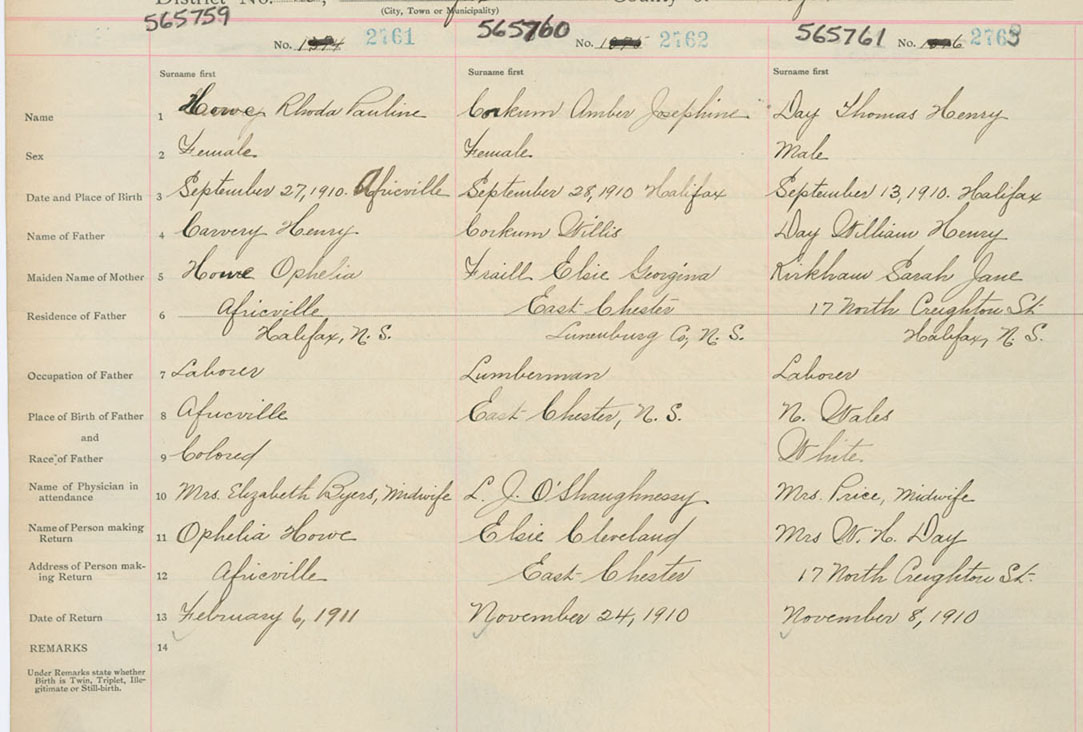 District No.
(City, Town or Municipality)
565759 565760 565761
No. 2761 No. 2762 No. 2763
Surname first Surname first Surname first
Name 1 Howe Rhoda Pauline Corkum Amber Josephine Day Thomas Henry
Sex 2 Female Female Male
Date and Place of Birth 3 September 27, 1910. Africville September 28, 1910 Halifax September 13, 1910. Halifax
Name of Father 4 Carvery Henry Corkum Willis Day William Henry
Maiden Name of Mother 5 Howe Ophelia Fraill Elsie Georgina Kirkham Sarah Jane
Residence of Father 6 Africville East Chester 17 North Creighton St
Halifax, N. S. Lunenburg Co, N. S. Halifax, N. S.
Occupation of Father 7 Laborer Lumberman Laborer
Place of Birth of Father 8 Africville East Chester, N. S. N. Wales
and
Race of Father 9 Colored White.
Name of Physician in attendance 10 Mrs. Elizabeth Byers, Midwife L. J. O'Shaughnessy Mrs. Price, Midwife
Name of Person making Return 11 Ophelia Howe Elsie Cleveland Mrs W. H. Day
Address of Person making Return 12 Africville East Chester 17 North Creighton St.
Date of Return 13 February 6, 1911 November 24, 1910 November 8, 1910
REMARKS 14
Under Remarks state whether
Birth is Twin, Triplet, Ille-
gitimate or Still-birth.